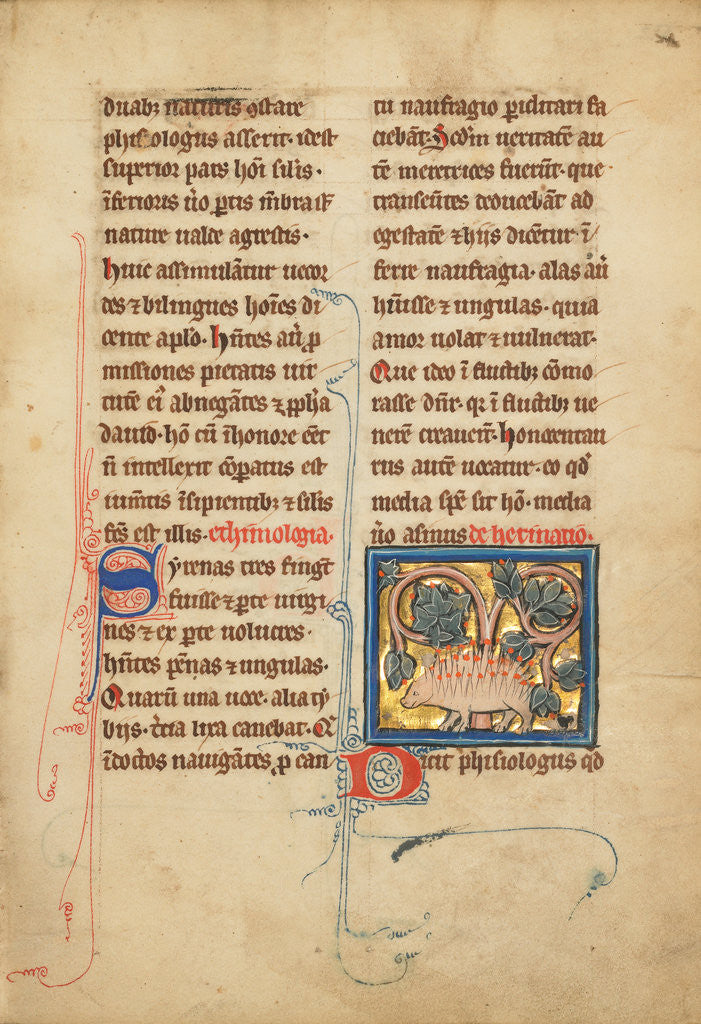 duabꝫ naturis ꝯstare
phisiologus asserit· idest
superior pars hoı̄ silis·
ı̄ferioris ṷo ꝑtis m̄bra st̄
nature ualde agrestis·
huic assimulātur uecor
des ⁊ bilingues hoı̄es di
cente aplo̅· hn̄tes au̅ ꝓ
missiones pietatis uir
tutē eı̅ abnegātes ⁊ ꝓph̄a
dauid· hō cū ı̄ honore eēt
n̄ intellexit cōꝑatus est
iumt̄is ı̄sipientibꝫ ⁊ silis
fc̄s est illis· ethimologia·
Syrenas tres fingt̄
fuisse ⁊ ꝑte uirgi
nes ⁊ ex ꝑte uolucres·
hn̄tes pēnas ⁊ ungulas·
Quarū una uoce· alia ty
bijs· tc̄ia lira canebat· Q̄
ı̄doctos nauigātes ꝑ can
tu naufragio ꝑiclitari fa
ciebāt· Scdm̄ ueritatē au
tē meretrices fuerūt· que
transeūtes deducebāt ad
egestatē ⁊ hijs dicetur ı̄
ferre naufragia· alas au̅
hūisse ⁊ ungulas· quia
amor uolat ⁊ uulnerat·
Que ideo ı̄ fluctibꝫ cōmo
rasse dn̄r· qr ı̄ fluctibꝫ ue
nerē creauerūt· honocentau
rus autē uocatur· eo qd̕
media spē sit hō· media
ṷo asinus de herinatio·
Dicit phisiologus qd